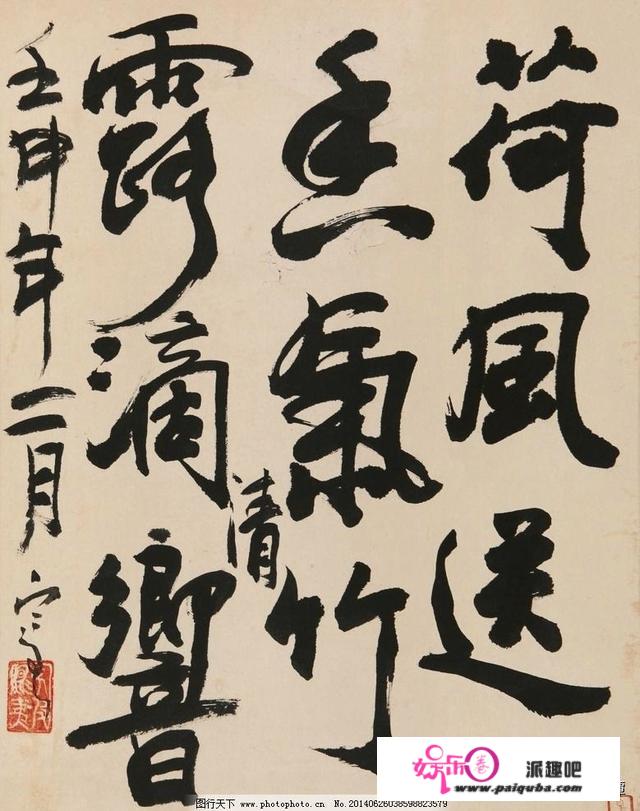 荷風送
香氣竹
露滴清響
壬申年二月
娱乐圈 派趣吧
www.paiquba.com
图行天下 www.photophoto.cn No.20140626038598823579